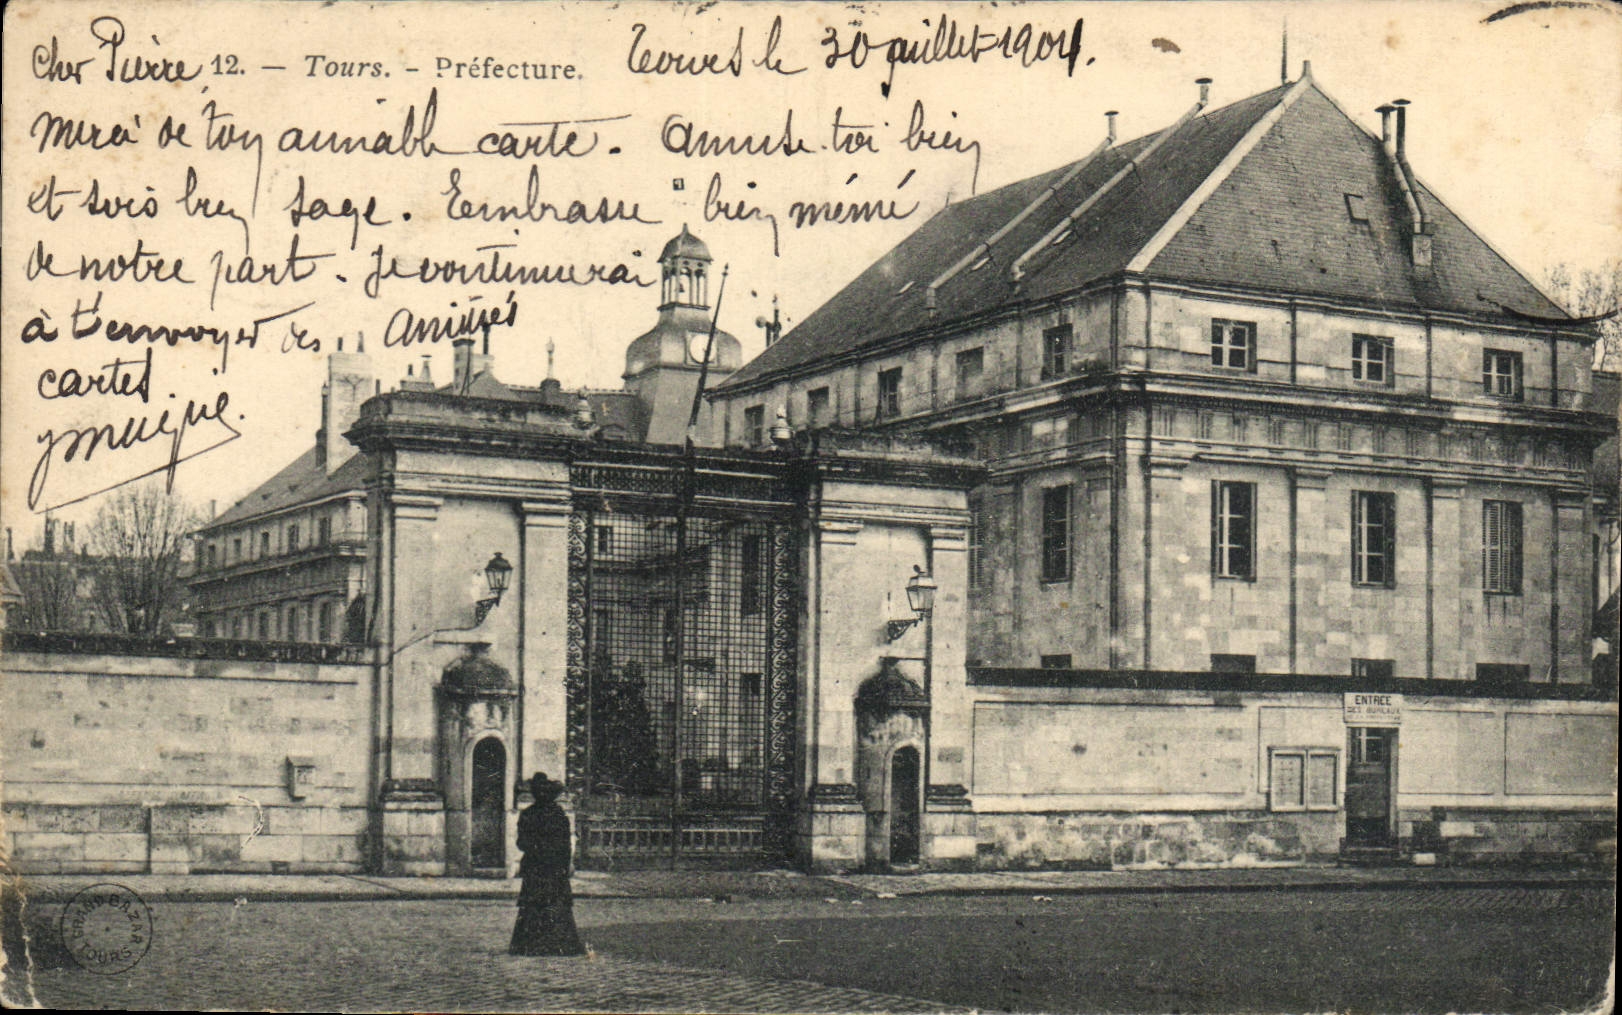 Cher Pierre 12. — Tours. - Préfecture. Tours le 30 juillet 1904.
Merci de ton aimable carte. Amuse toi bien
et sois bien sage. Embrasse bien mémé
de notre part. Je continuerai
à t'envoyer des
cartes
ENTRÉE
DES BUREAUX
GRAND BAZAR
TOURS